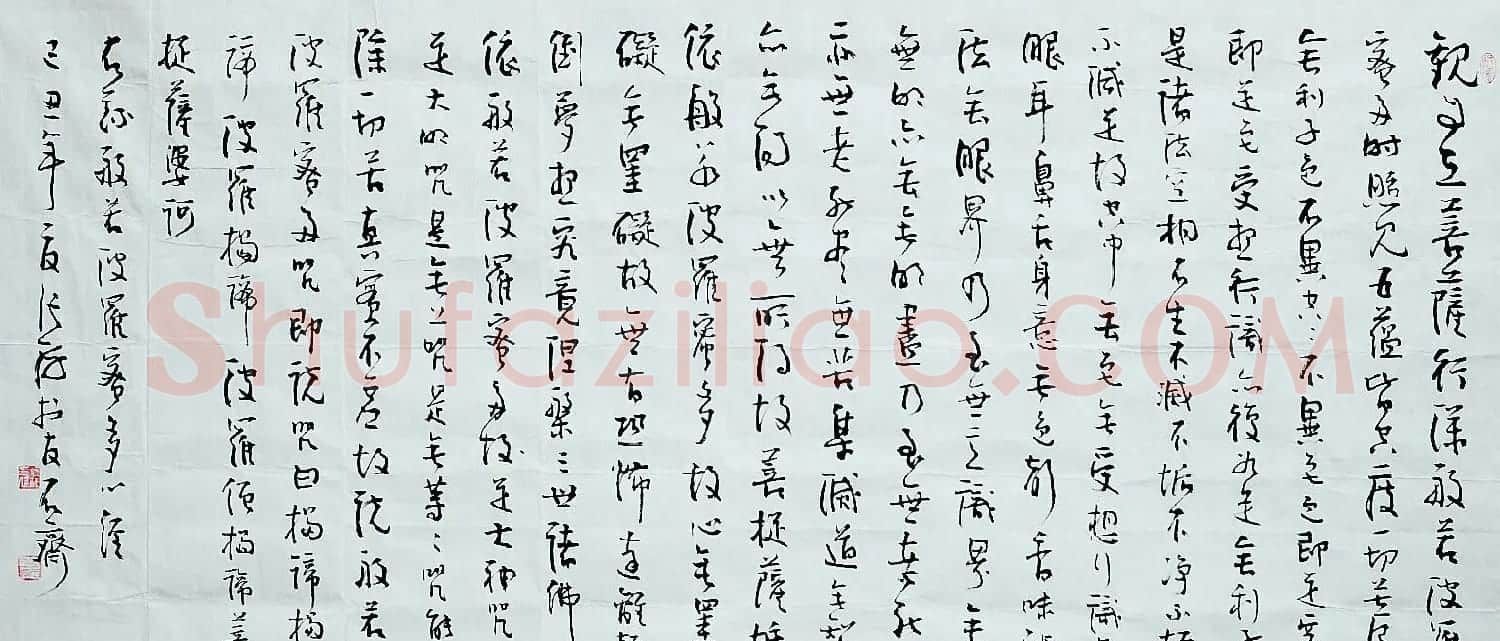 觀自在菩薩行深般若波羅
蜜多時照見五蘊皆空度一切苦厄
舍利子色不異空空不異色色即是空
即是色受想行識亦復如是舍利子
是諸法空相不生不滅不垢不淨不增
不減是故空中無色無受想行識無
眼耳鼻舌身意無色聲香味觸
法無眼界乃至無意識界無
無明亦無無明盡乃至無老死
亦無老死盡無苦集滅道無智
亦無得以無所得故菩提薩埵
依般若波羅蜜多故心無罣
礙無罣礙故無有恐怖遠離顛
倒夢想究竟涅槃三世諸佛
依般若波羅蜜多故
是大神咒
是大明咒是無上咒是無等等咒能
除一切苦真實不虛故說般若
波羅蜜多咒即說咒曰揭諦揭
諦波羅揭諦波羅僧揭諦菩
提薩婆訶
右錄般若波羅蜜多心經
己丑年夏 於 石齋
Shufaziliao.COM